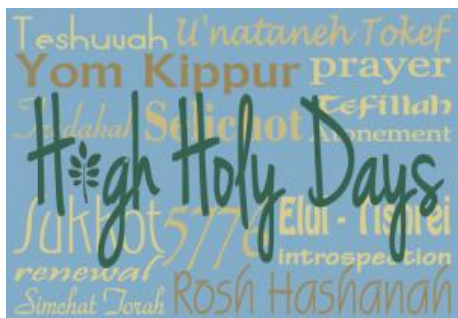 Teshuvah U'nataneh Tokef
Yom Kippur prayer
Tefillah
Tzedakah Selichot Atonement
High Holy Days
Sukkot 5776 Elul - Tishrei
introspection
renewal
Simchat Torah Rosh Hashanah